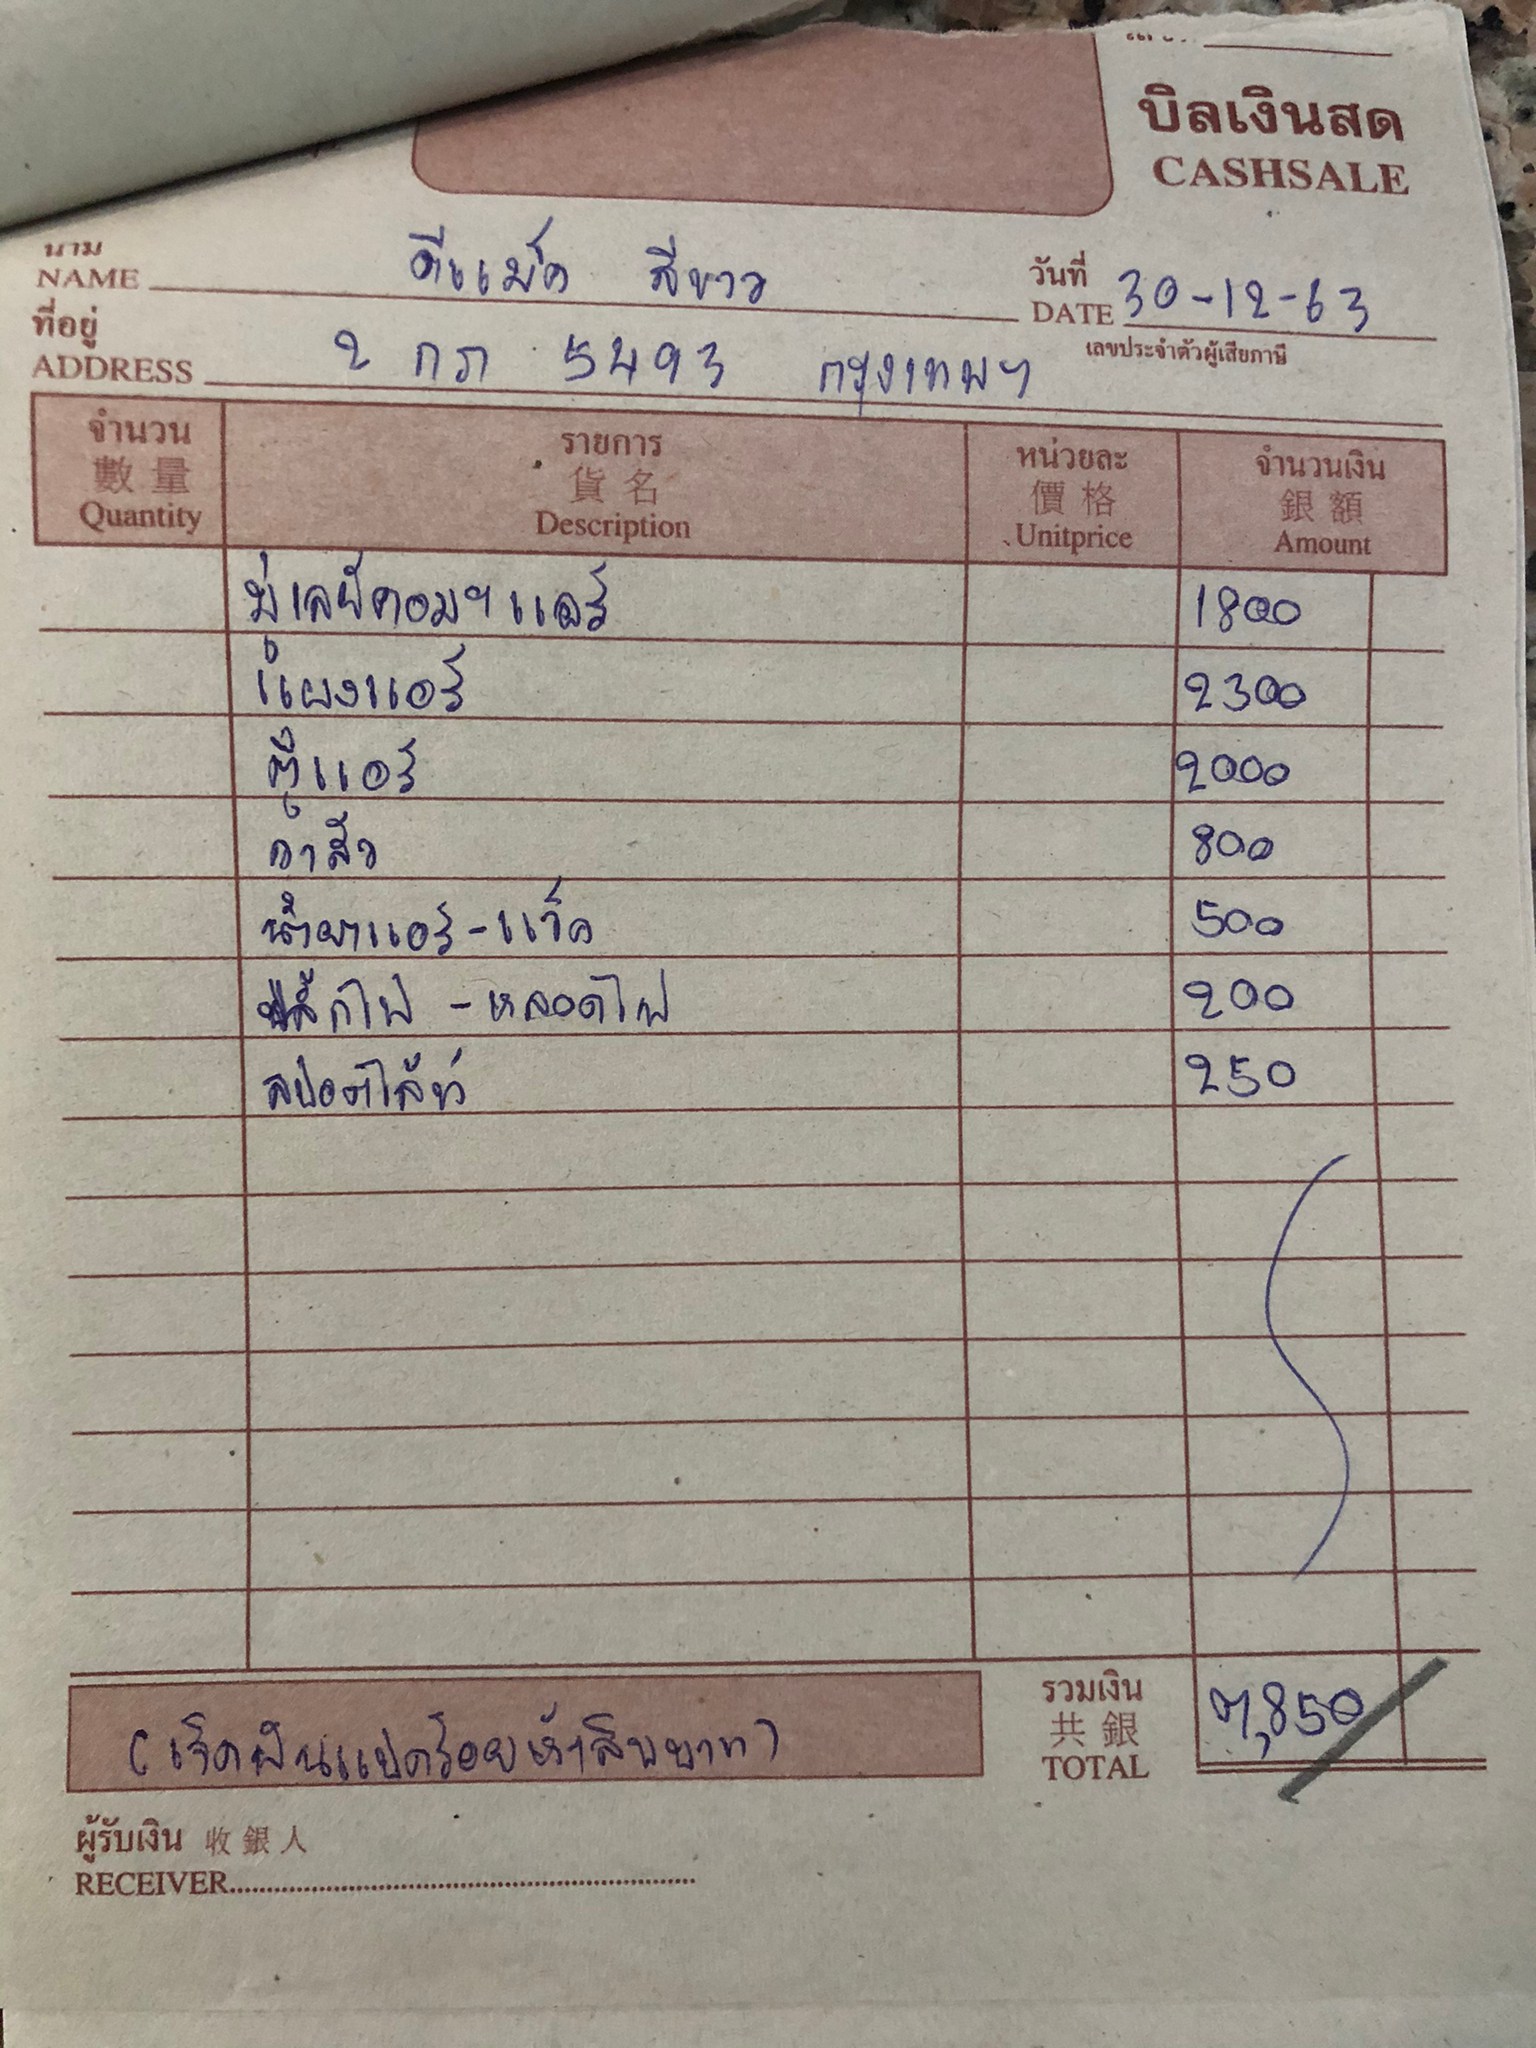 บิลเงินสด
CASHSALE
นาม
NAME ดีแม็ค สีขาว
วันที่
DATE 30-12-63
ที่อยู่
ADDRESS 2 กภ 5493 กรุงเทพฯ
เลขประจำตัวผู้เสียภาษี
จำนวน รายการ หน่วยละ จำนวนเงิน
數量 貨名 價格 銀額
Quantity Description Unitprice Amount
มู่เลย์คอมฯแอร์ 1800
แผงแอร์ 2300
ตู้แอร์ 2000
วาล์ว 800
น้ำยาแอร์-แว็ค 500
ปลั๊กไฟ - หลอดไฟ 200
สปอตไล้ท์ 250
(เจ็ดพันแปดร้อยห้าสิบบาท)
รวมเงิน
共銀
TOTAL 7,850
ผู้รับเงิน 收銀人
RECEIVER